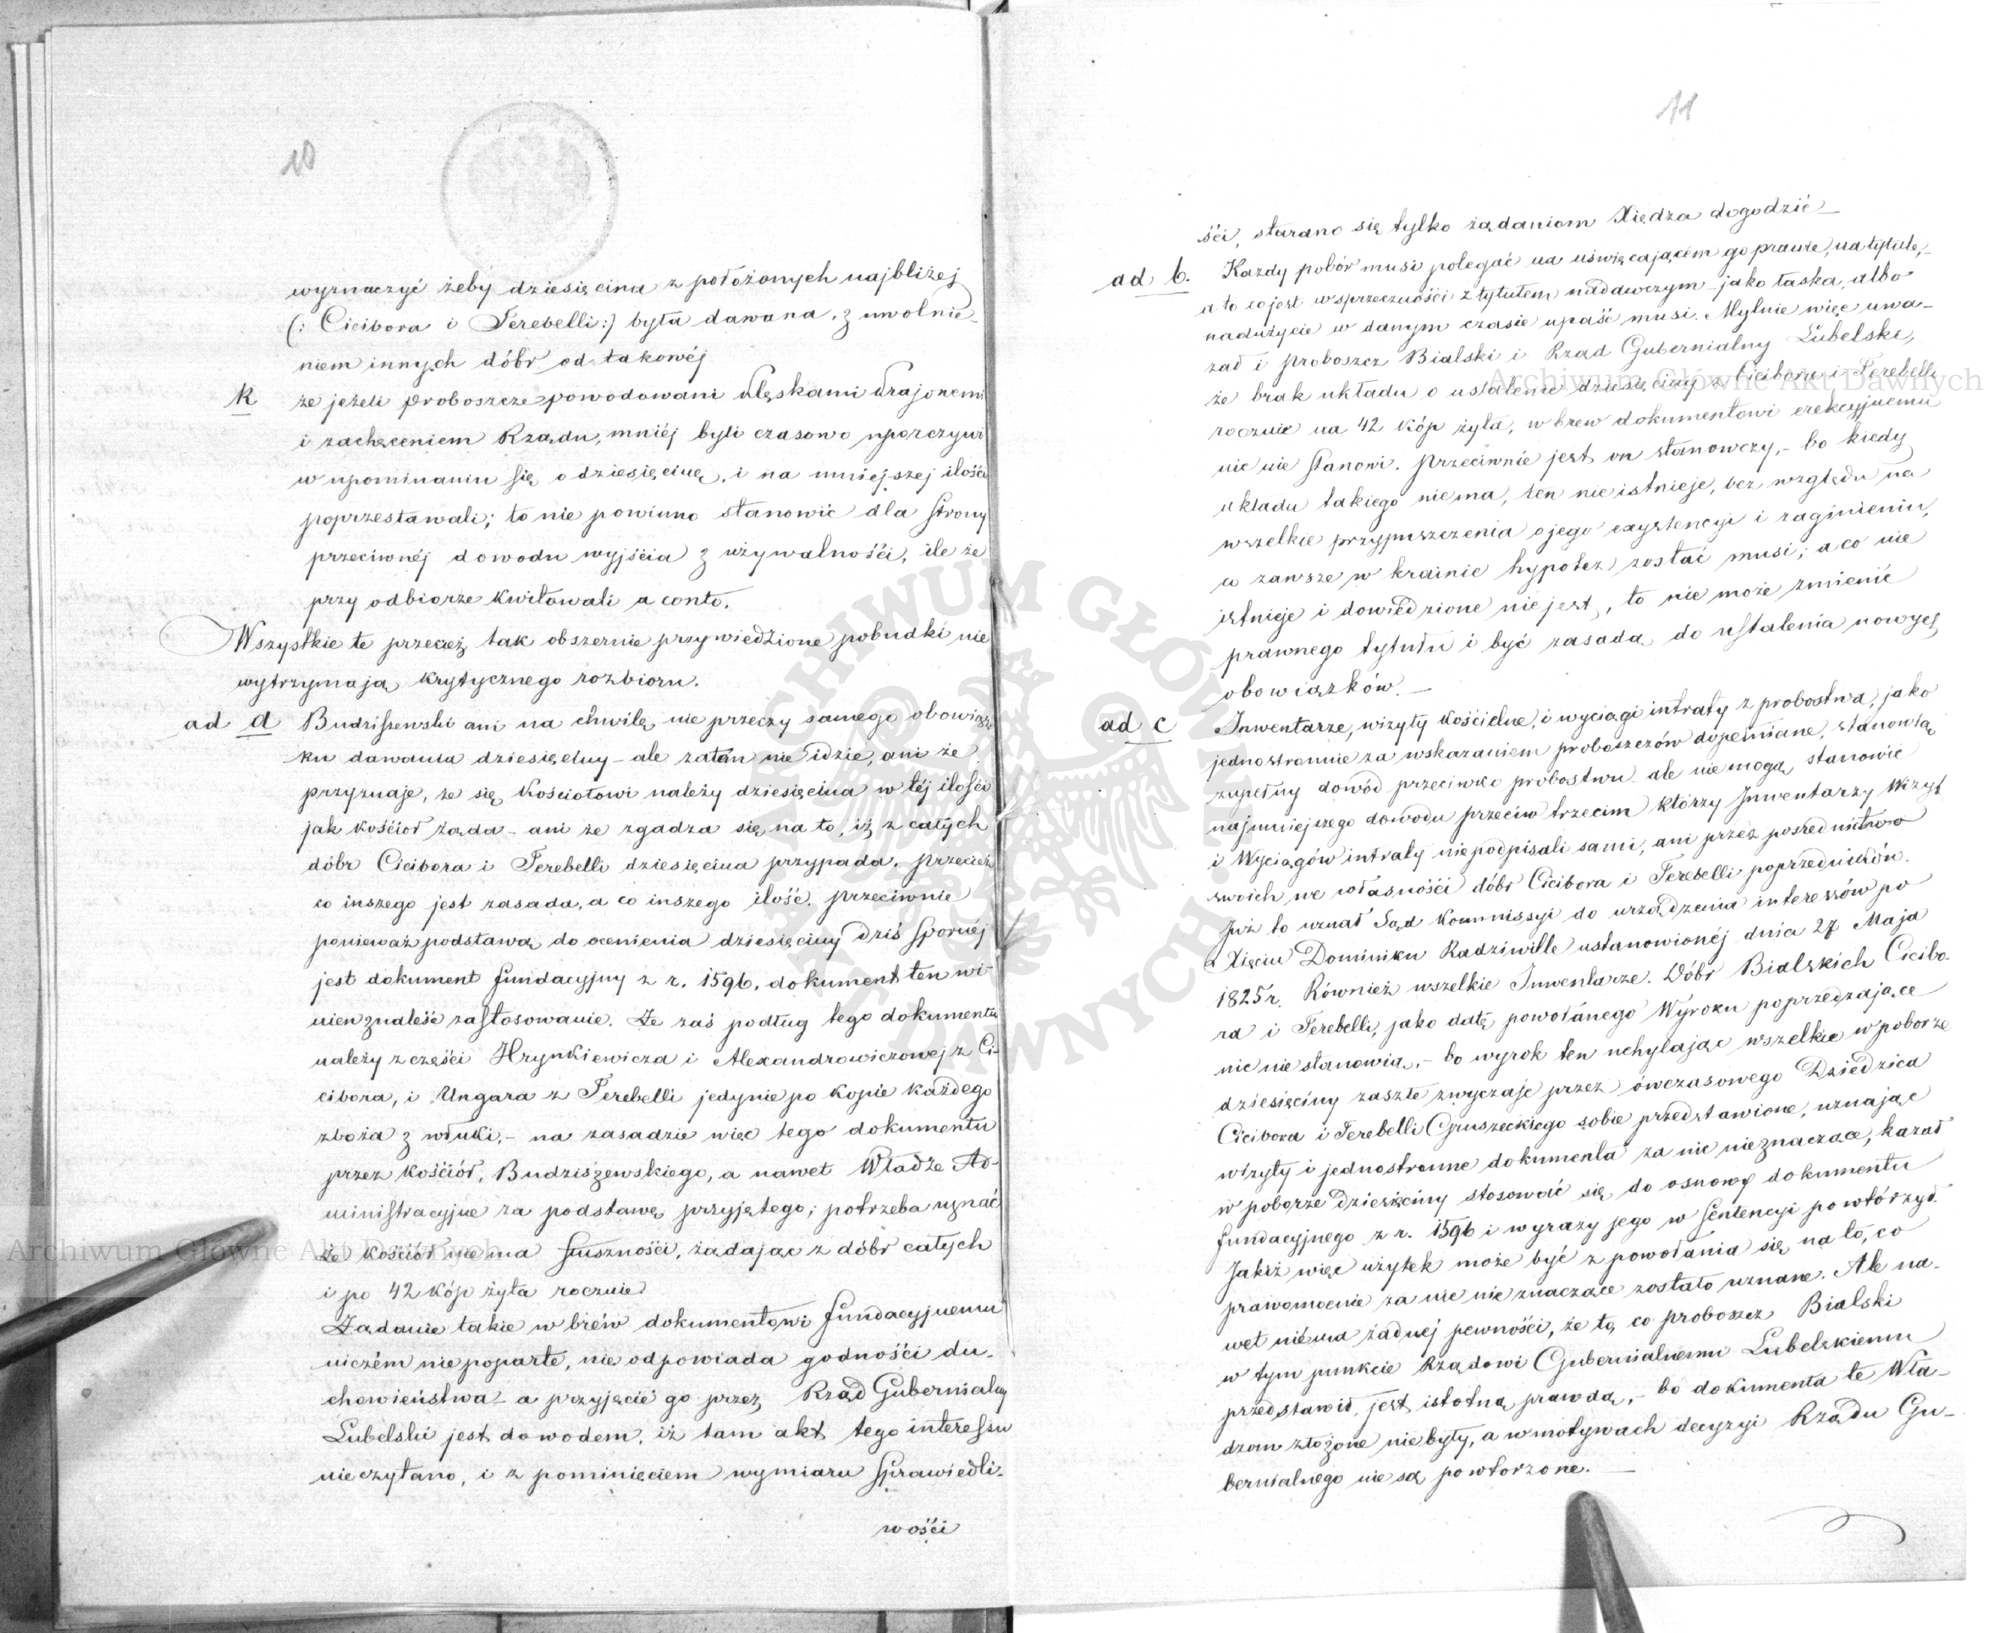 10
wyznaczyć żeby dziesięcina z położonych najbliżej
(: Cicibora i Terebelli :) była dawana, z uwolnie-
niem innych dóbr od takowéj
k że jeżeli proboszcze powodowani klęskami krajowemi
i zachęceniem Rządu, mniéj byli czasowo uporczywi
w upominaniu się o dziesięcinę, i na mniejszej ilości
poprzestawali; to nie powinno stanowić dla strony
przeciwnéj dowodu wyjścia z używalności, ile że
przy odbiorze kwitowali a conto.
Wszystkie te przecież tak obszernie przywiedzione pobudki nie
wytrzymają krytycznego rozbioru.
ad a Budziszewski ani na chwilę nie przeczy samego obowiąz
ku dawania dziesięciny – ale zatém nie idzie, ani że
przyznaje, że się Kościołowi należy dziesięcina w téj ilości
jak kościół żąda – ani że zgadza się na to, iż z całych
dóbr Cicibora i Terebelli dziesięcina przypada. Przecież
co inszego jest zasada, a co inszego ilość. Przeciwnie
ponieważ podstawą do ocenienia dziesięciny dziś spornéj
jest dokument fundacyjny z r. 1596, dokument ten wi-
nien znaleść zastosowanie. Że zaś podług tego dokumentu
należy z części Hrynkiewicza i Alexandrowiczowej z Ci-
cibora, i Ungara z Terebelli jedynie po kopie każdego
zboża z włuki, – na zasadzie więc tego dokumentu
przez kościół, Budziszewskiego, a nawet Władze Ad-
ministracyjne za podstawę przyjętego; potrzeba uznać
że kościół nie ma słuszności, żądając z dóbr całych
i po 42 kóp żyta rocznie
Żądanie takie w brew dokumentowi fundacyjnemu
niczém nie poparte, nie odpowiada godności du-
chowieństwa – a przyjęcie go przez Rząd Gubernialny
Lubelski jest dowodem, iż tam akt tego interessu
nie czytano, i z pominięciem wymiaru sprawiedli-
wości
11
ści, starano się tylko żądaniom Xiędza dogodzić –
ad b. Każdy pobór musi polegać na uświęcającém go prawie, na tytule, –
a to co jest w sprzeczności z tytułem nadawczym – jako łaska, albo
nadużycie w danym czasie upaść musi. Mylnie więc uwa-
żał i proboszcz Bialski i Rząd Gubernialny Lubelski,
że brak układu o ustalenie dziesięciny z Cicibora i Terebelli
rocznie na 42 kóp żyta, w brew dokumentowi erekcyjnemu
nic nie stanowi. Przeciwnie jest on stanowczy, – bo kiedy
układu takiego niema, ten nieistnieje, bez względu na
wszelkie przypuszczenia o jego exystencyi i zaginieniu,
a zawsze w krainie hypotez zostać musi; a co nie
istnieje i dowiedzione nie jest, to nie może zmienić
prawnego tytułu i być zasadą do ustalenia nowych
obowiązków. –
ad c Inwentarze, wizyty kościelne, i wyciągi intraty z probostwa, jako
jednostronnie za wskazaniem proboszczów dopełniane, stanowią
zupełny dowód przeciwko probostwu – ale nie mogą stanowić
najmniejszego dowodu przeciw trzecim którzy Inwentarzy Wizyt
i Wyciągów intraty niepodpisali sami, ani przez pośrednictwo
swoich we własności dóbr Cicibora i Terebelli poprzedników.
Już to uznał Sąd Kommissyi do urządzenia interessów po
Xięciu Dominiku Radziwille ustanowionéj dnia 27 Maja
1825 r. Również wszelkie Inwentarze Dóbr Bialskich Cicibo-
ra i Terebelli, jako datę powołanego Wyroku poprzedzające
nic nie stanowią, – bo wyrok ten uchylając wszelkie w poborze
dziesięciny zaszłe zwyczaje przez ówczasowego Dziedzica
Cicibora i Terebelli Gruszeckiego sobie przedstawione, uznając
wizyty i jednostronne dokumenta za nic nieznaczące, kazał
w poborze dziesięciny stosować się do osnowy dokumentu
fundacyjnego z r. 1596 i wyrazy jego w sentencyi powtórzył.
Jakiż więc użytek może być z powołania się na to, co
prawomocnie za nic nie znaczące zostało uznane. Ale na-
wet niéma żadnej pewności, że to, co proboszcz Bialski
w tym punkcie Rządowi Gubernialnemu Lubelskiemu
przedstawił, jest istotną prawdą, – bo dokumenta te Wła-
dzom złożone niebyły, a w motywach decyzyi Rządu Gu-
bernialnego nie są powtorzone. –
Archiwum Główne Akt Dawnych
Archiwum Główne Akt Dawnych
ARCHIWUM GŁÓWNE AKT DAWNYCH